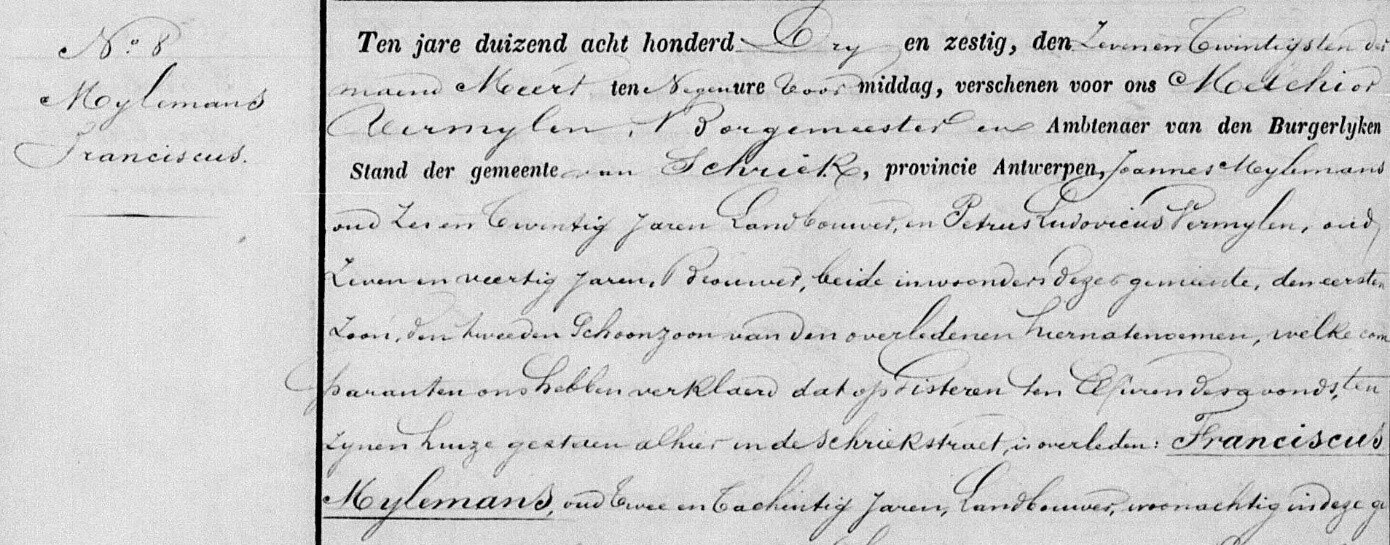 N.o 8
Mylemans
Franciscus.
Ten jare duizend acht honderd Dry en zestig, den Zeven en Twintigsten der
maend Meert ten Negen ure Voor middag, verschenen voor ons Melchior
Vermylen, Borgemeester en Ambtenaer van den Burgerlyken
Stand der gemeente van Schriek, provincie Antwerpen, Joannes Mylemans
oud Zes en Twintig Jaren Landbouwer, en Petrus Ludovicus Vermylen, oud
Zeven en veertig Jaren, Brouwer, beide inwoonders dezer gemeente, den eersten
Zoon, den tweeden Schoonzoon van den overledenen hiernatenoemen, welke com
paranten ons hebben verklaerd dat op Gisteren ten uren des avonds, ten
Zynen huize gestaen alhier in de Schriekstraet, is overleden: Franciscus
Mylemans, oud Twee en Tachintig Jaren, Landbouwer, woonachtig in deze ge